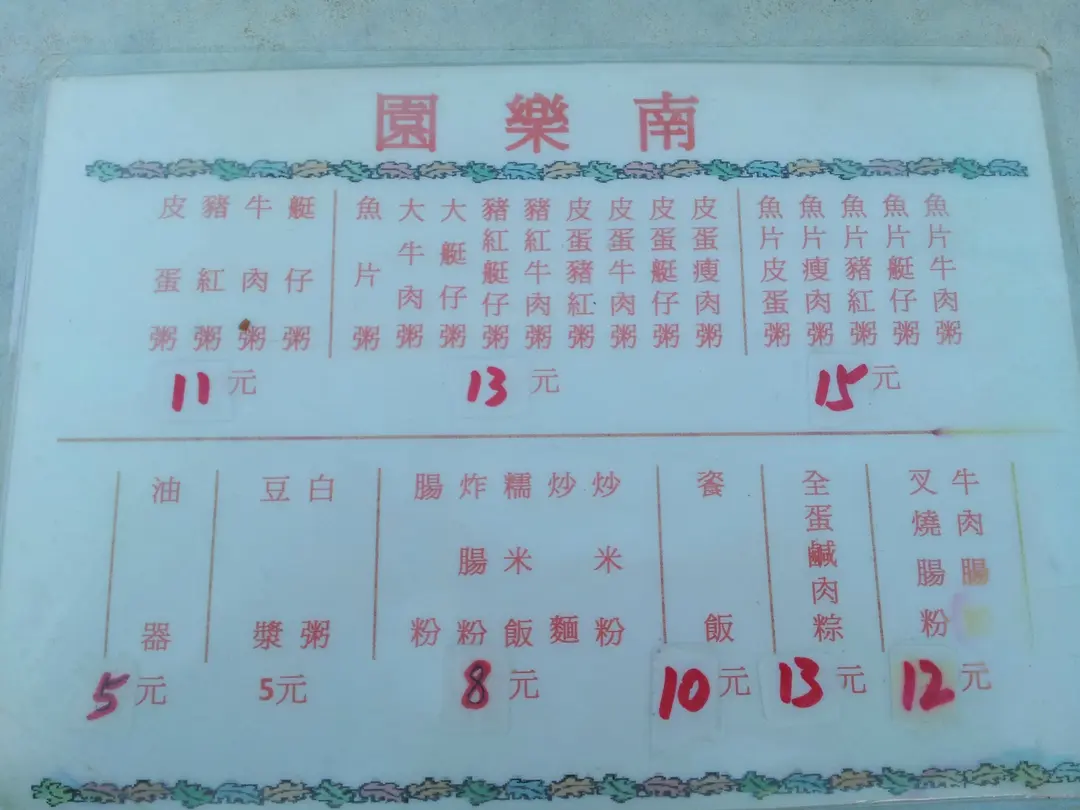 南樂園
魚片牛肉粥
魚片艇仔粥
魚片豬紅粥
魚片瘦肉粥
魚片皮蛋粥
15元
皮蛋瘦肉粥
皮蛋艇仔粥
皮蛋牛肉粥
皮蛋豬紅粥
豬紅牛肉粥
豬紅艇仔粥
大艇仔粥
大牛肉粥
魚片粥
13元
艇仔粥
牛肉粥
豬紅粥
皮蛋粥
11元
牛肉腸
叉燒腸粉
12元
全蛋鹹肉粽
13元
餈飯
10元
炒米粉
炒麵
糯米飯
炸腸粉
腸粉
8元
白粥
豆漿
5元
油器
5元